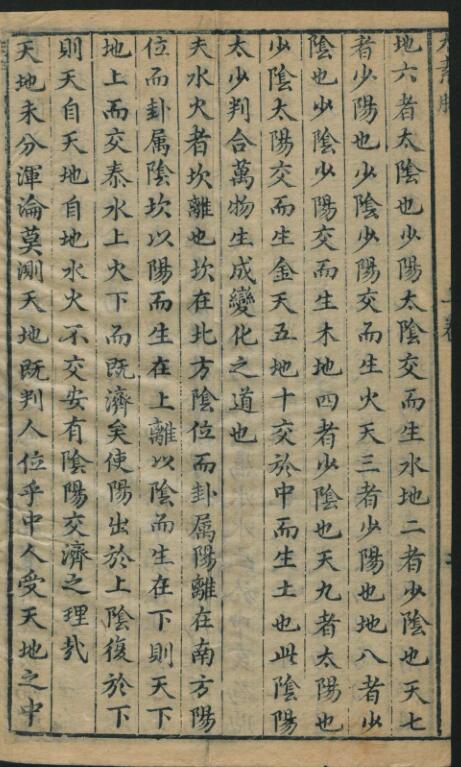 地六者太陰也少陽太陰交而生水地二者少陰也天七
者少陽也少陰少陽交而生火天三者少陽也地八者少
陰也少陰少陽交而生木地四者少陰也天九者太陽也
少陰太陽交而生金天五地十交於中而生土也此陰陽
太少判合萬物生成變化之道也
夫水火者坎離也坎在北方陰位而卦属陽離在南方陽
位而卦属陰坎以陽而生在上離以陰而生在下則天下
地上而交泰水上火下而既濟矣使陽出於上陰復於下
則天自天地自地水火不交安有陰陽交濟之理㢤
天地未分渾淪莫測天地既判人位乎中人受天地之中